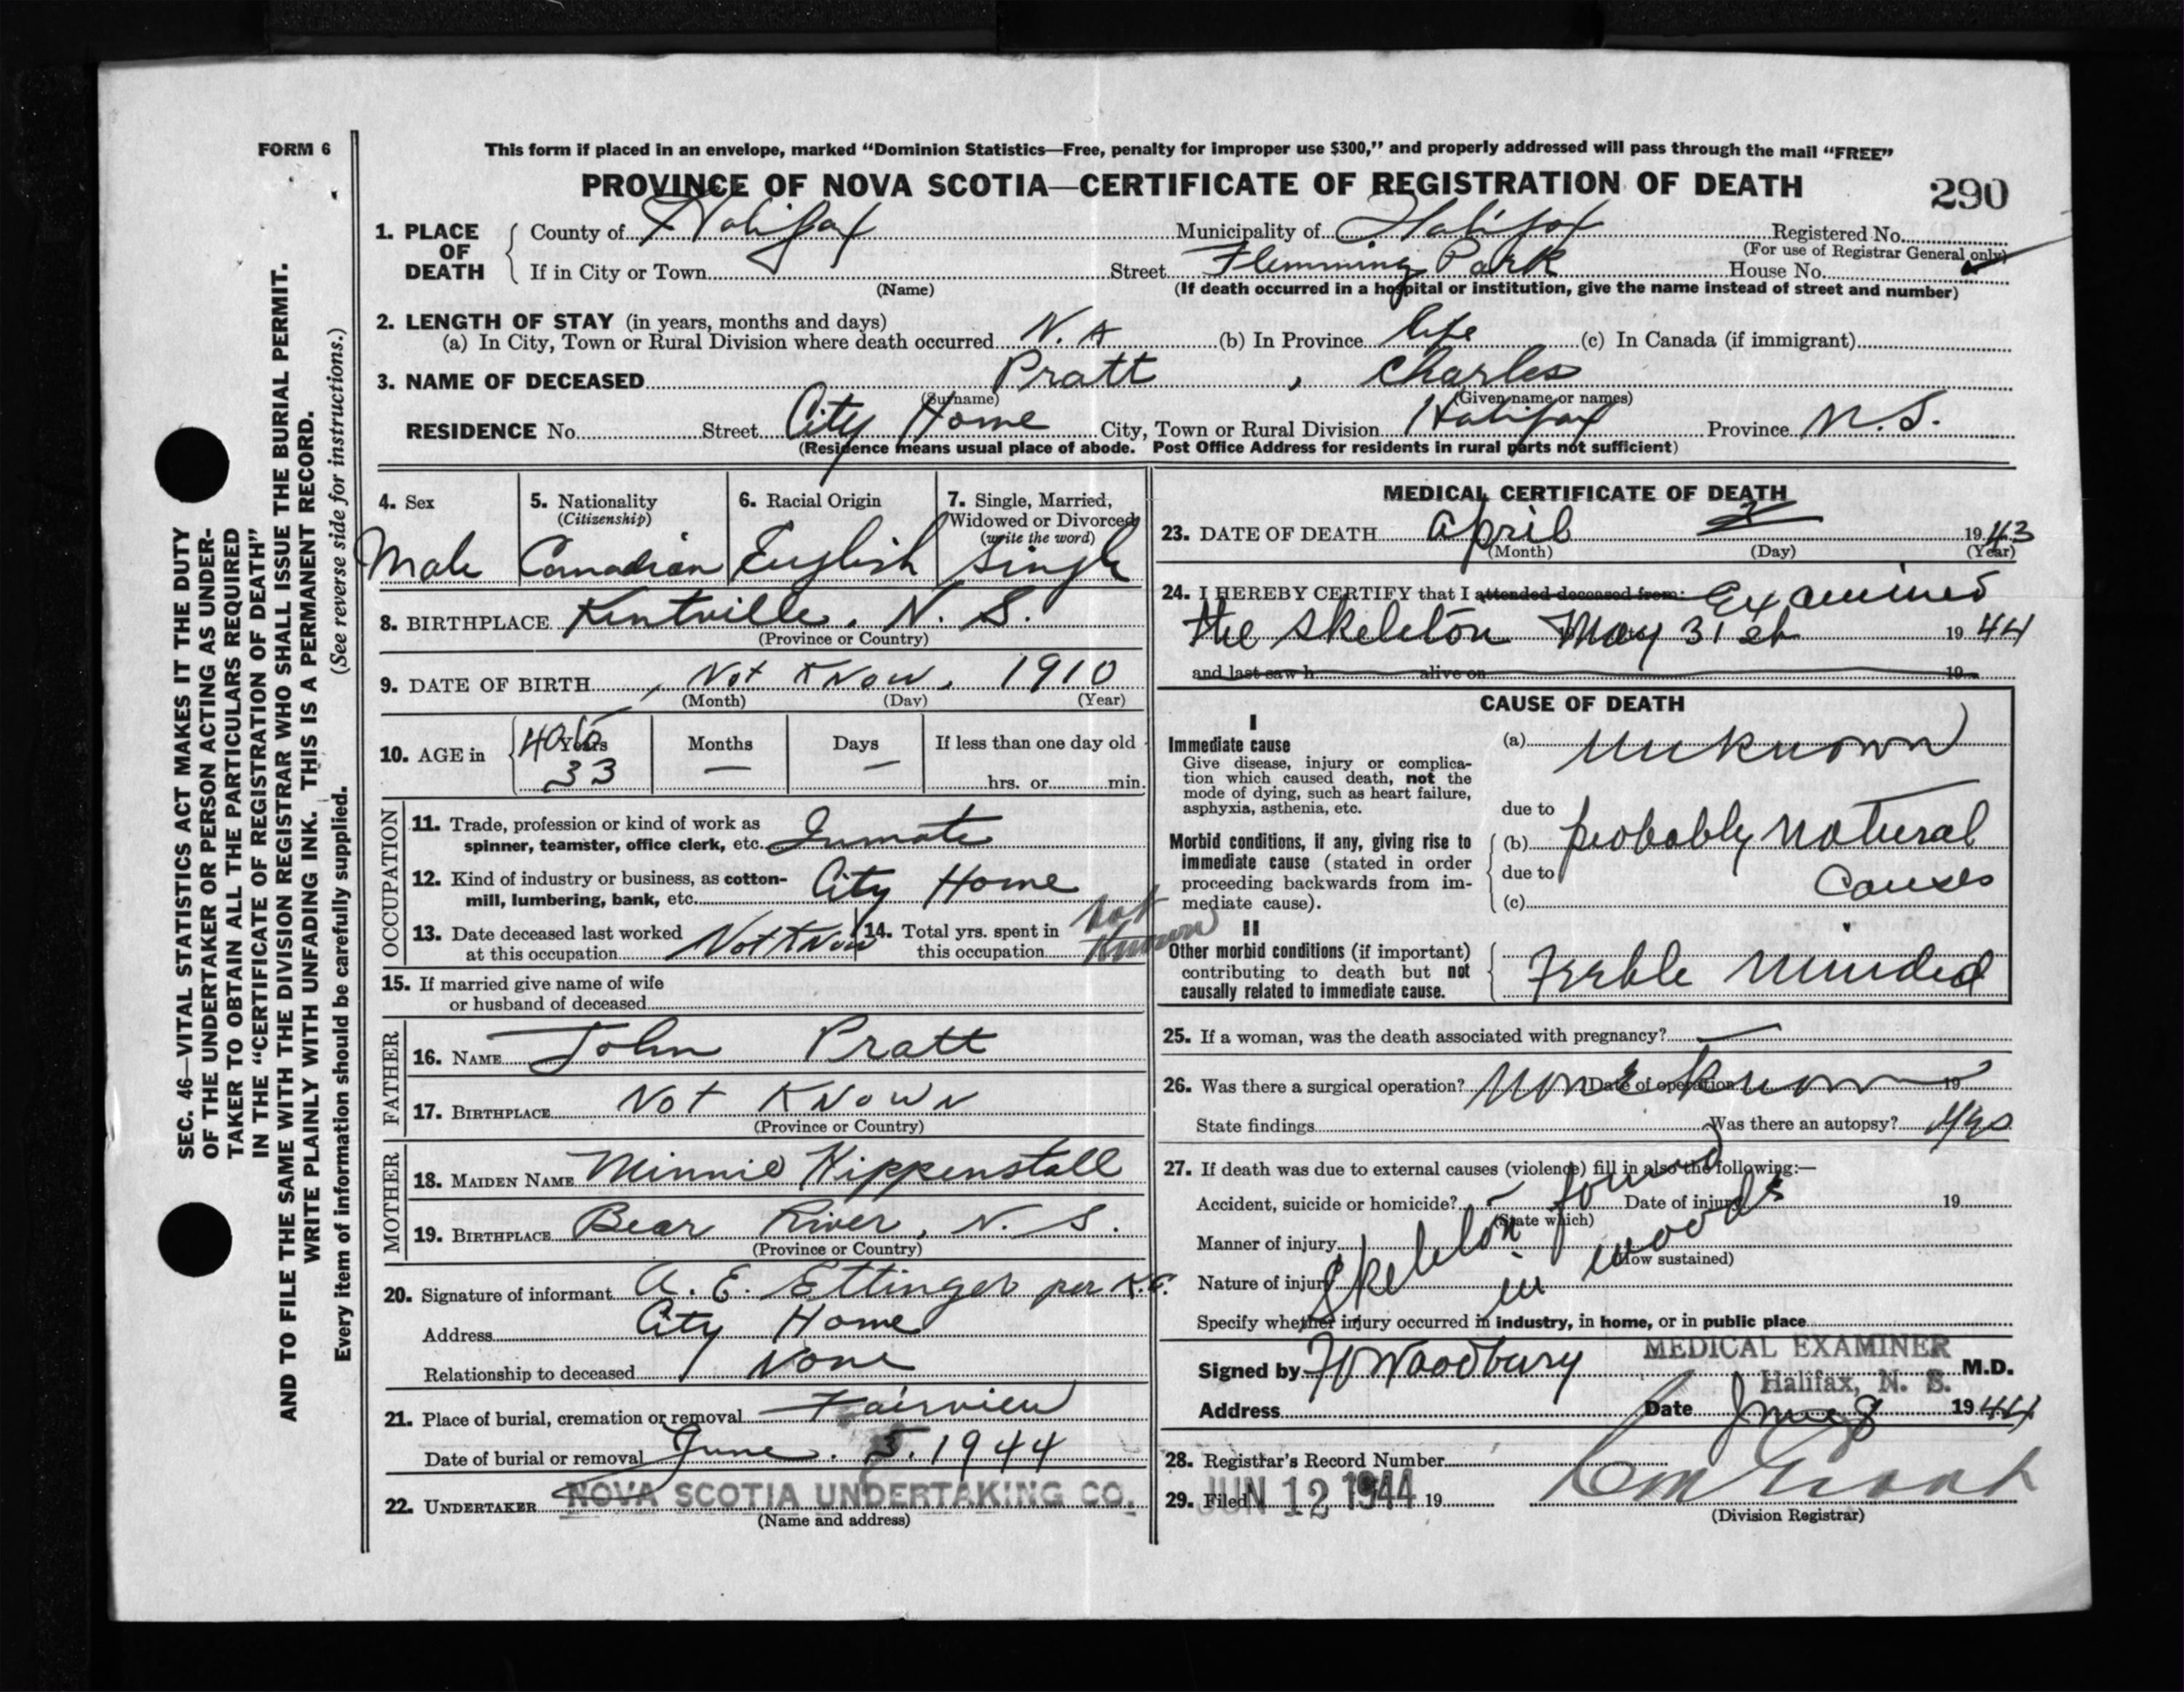 FORM 6
This form if placed in an envelope, marked "Dominion Statistics—Free, penalty for improper use $300," and properly addressed will pass through the mail "FREE"
PROVINCE OF NOVA SCOTIA—CERTIFICATE OF REGISTRATION OF DEATH
290
1. PLACE OF DEATH County of Halifax Municipality of Halifax Registered No.
(For use of Registrar General only)
If in City or Town Street Flemming Park House No.
(Name) (If death occurred in a hospital or institution, give the name instead of street and number)
2. LENGTH OF STAY (in years, months and days)
(a) In City, Town or Rural Division where death occurred N.A (b) In Province life (c) In Canada (if immigrant)
3. NAME OF DECEASED Pratt, Charles
(Surname) (Given name or names)
RESIDENCE No. Street City Home City, Town or Rural Division Halifax Province N.S.
(Residence means usual place of abode. Post Office Address for residents in rural parts not sufficient)
4. Sex
Male
5. Nationality
(Citizenship)
Canadian
6. Racial Origin
English
7. Single, Married,
Widowed or Divorced
(write the word)
Single
8. BIRTHPLACE Kentville. N. S.
(Province or Country)
9. DATE OF BIRTH Not Know, 1910
(Month) (Day) (Year)
10. AGE in Years Months Days If less than one day old
33 — — hrs. or min.
OCCUPATION
11. Trade, profession or kind of work as
spinner, teamster, office clerk, etc. Inmate
12. Kind of industry or business, as cotton-
mill, lumbering, bank, etc. City Home
13. Date deceased last worked
at this occupation Not Know
14. Total yrs. spent in
this occupation not known
15. If married give name of wife
or husband of deceased
FATHER
16. NAME John Pratt
17. BIRTHPLACE Not Known
(Province or Country)
MOTHER
18. MAIDEN NAME Minnie Hippenstall
19. BIRTHPLACE Bear River, N. S.
(Province or Country)
20. Signature of informant A. E. Ettinger per
Address City Home
Relationship to deceased None
21. Place of burial, cremation or removal Fairview
Date of burial or removal June. 5. 1944
22. UNDERTAKER NOVA SCOTIA UNDERTAKING CO.
(Name and address)
MEDICAL CERTIFICATE OF DEATH
23. DATE OF DEATH April 2 1943
(Month) (Day) (Year)
24. I HEREBY CERTIFY that I attended deceased from: Examined
the skeleton May 31st 1944
and last saw h alive on 19
CAUSE OF DEATH
I
Immediate cause
Give disease, injury or complica-
tion which caused death, not the
mode of dying, such as heart failure,
asphyxia, asthenia, etc.
(a) Unknown
due to
Morbid conditions, if any, giving rise to
immediate cause (stated in order
proceeding backwards from im-
mediate cause).
(b) probably natural
due to
(c) causes
II
Other morbid conditions (if important)
contributing to death but not
causally related to immediate cause.
Feeble minded
25. If a woman, was the death associated with pregnancy? —
26. Was there a surgical operation? None known Date of operation 19
State findings Was there an autopsy? yes
27. If death was due to external causes (violence) fill in also the following:—
Accident, suicide or homicide? Date of injury 19
(State which)
Manner of injury
(How sustained)
Nature of injury
Skeleton found
in woods
Specify whether injury occurred in industry, in home, or in public place
Signed by Woodbury MEDICAL EXAMINER M.D.
Halifax, N. S.
Address Date June 8 1944
28. Registrar's Record Number
29. Filed JUN 12 1944 19
(Division Registrar)
SEC. 46—VITAL STATISTICS ACT MAKES IT THE DUTY
OF THE UNDERTAKER OR PERSON ACTING AS UNDER-
TAKER TO OBTAIN ALL THE PARTICULARS REQUIRED
IN THE "CERTIFICATE OF REGISTRATION OF DEATH"
AND TO FILE THE SAME WITH THE DIVISION REGISTRAR WHO SHALL ISSUE THE BURIAL PERMIT.
WRITE PLAINLY WITH UNFADING INK. THIS IS A PERMANENT RECORD.
Every item of information should be carefully supplied. (See reverse side for instructions.)